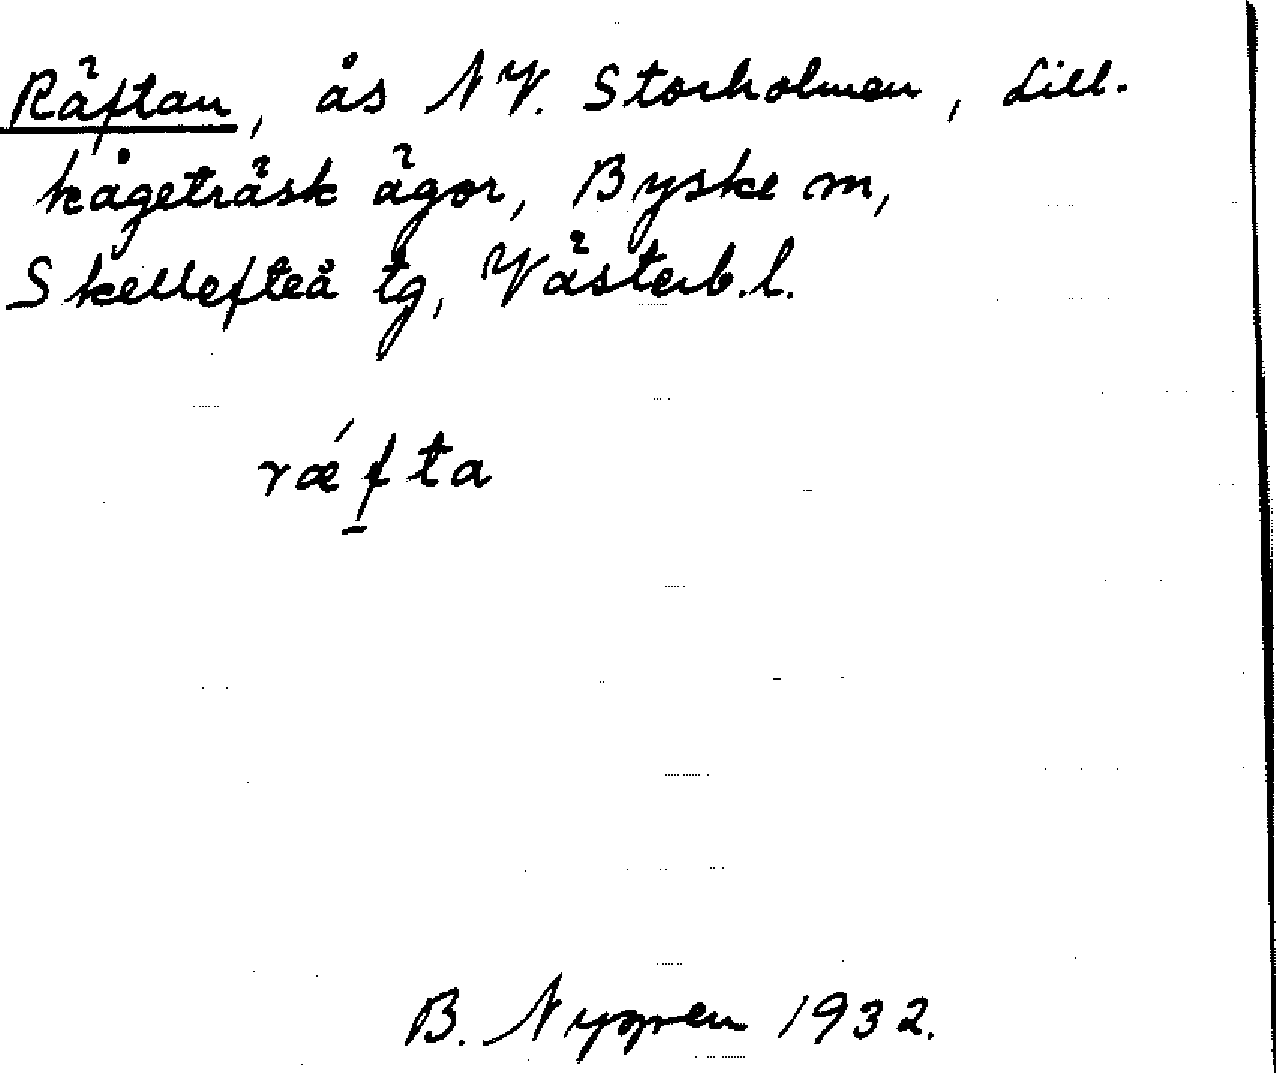 Räftan, ås NV. Storholmen, Lill-
kågeträsk ägor, Byske sn,
Skellefteå tg, Västerb.l.
ræ´f̠ta
B. Nygren 1932.